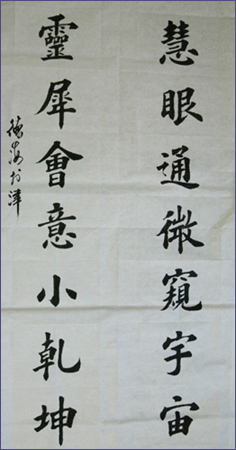 慧眼通微窺宇宙
靈犀會意小乾坤